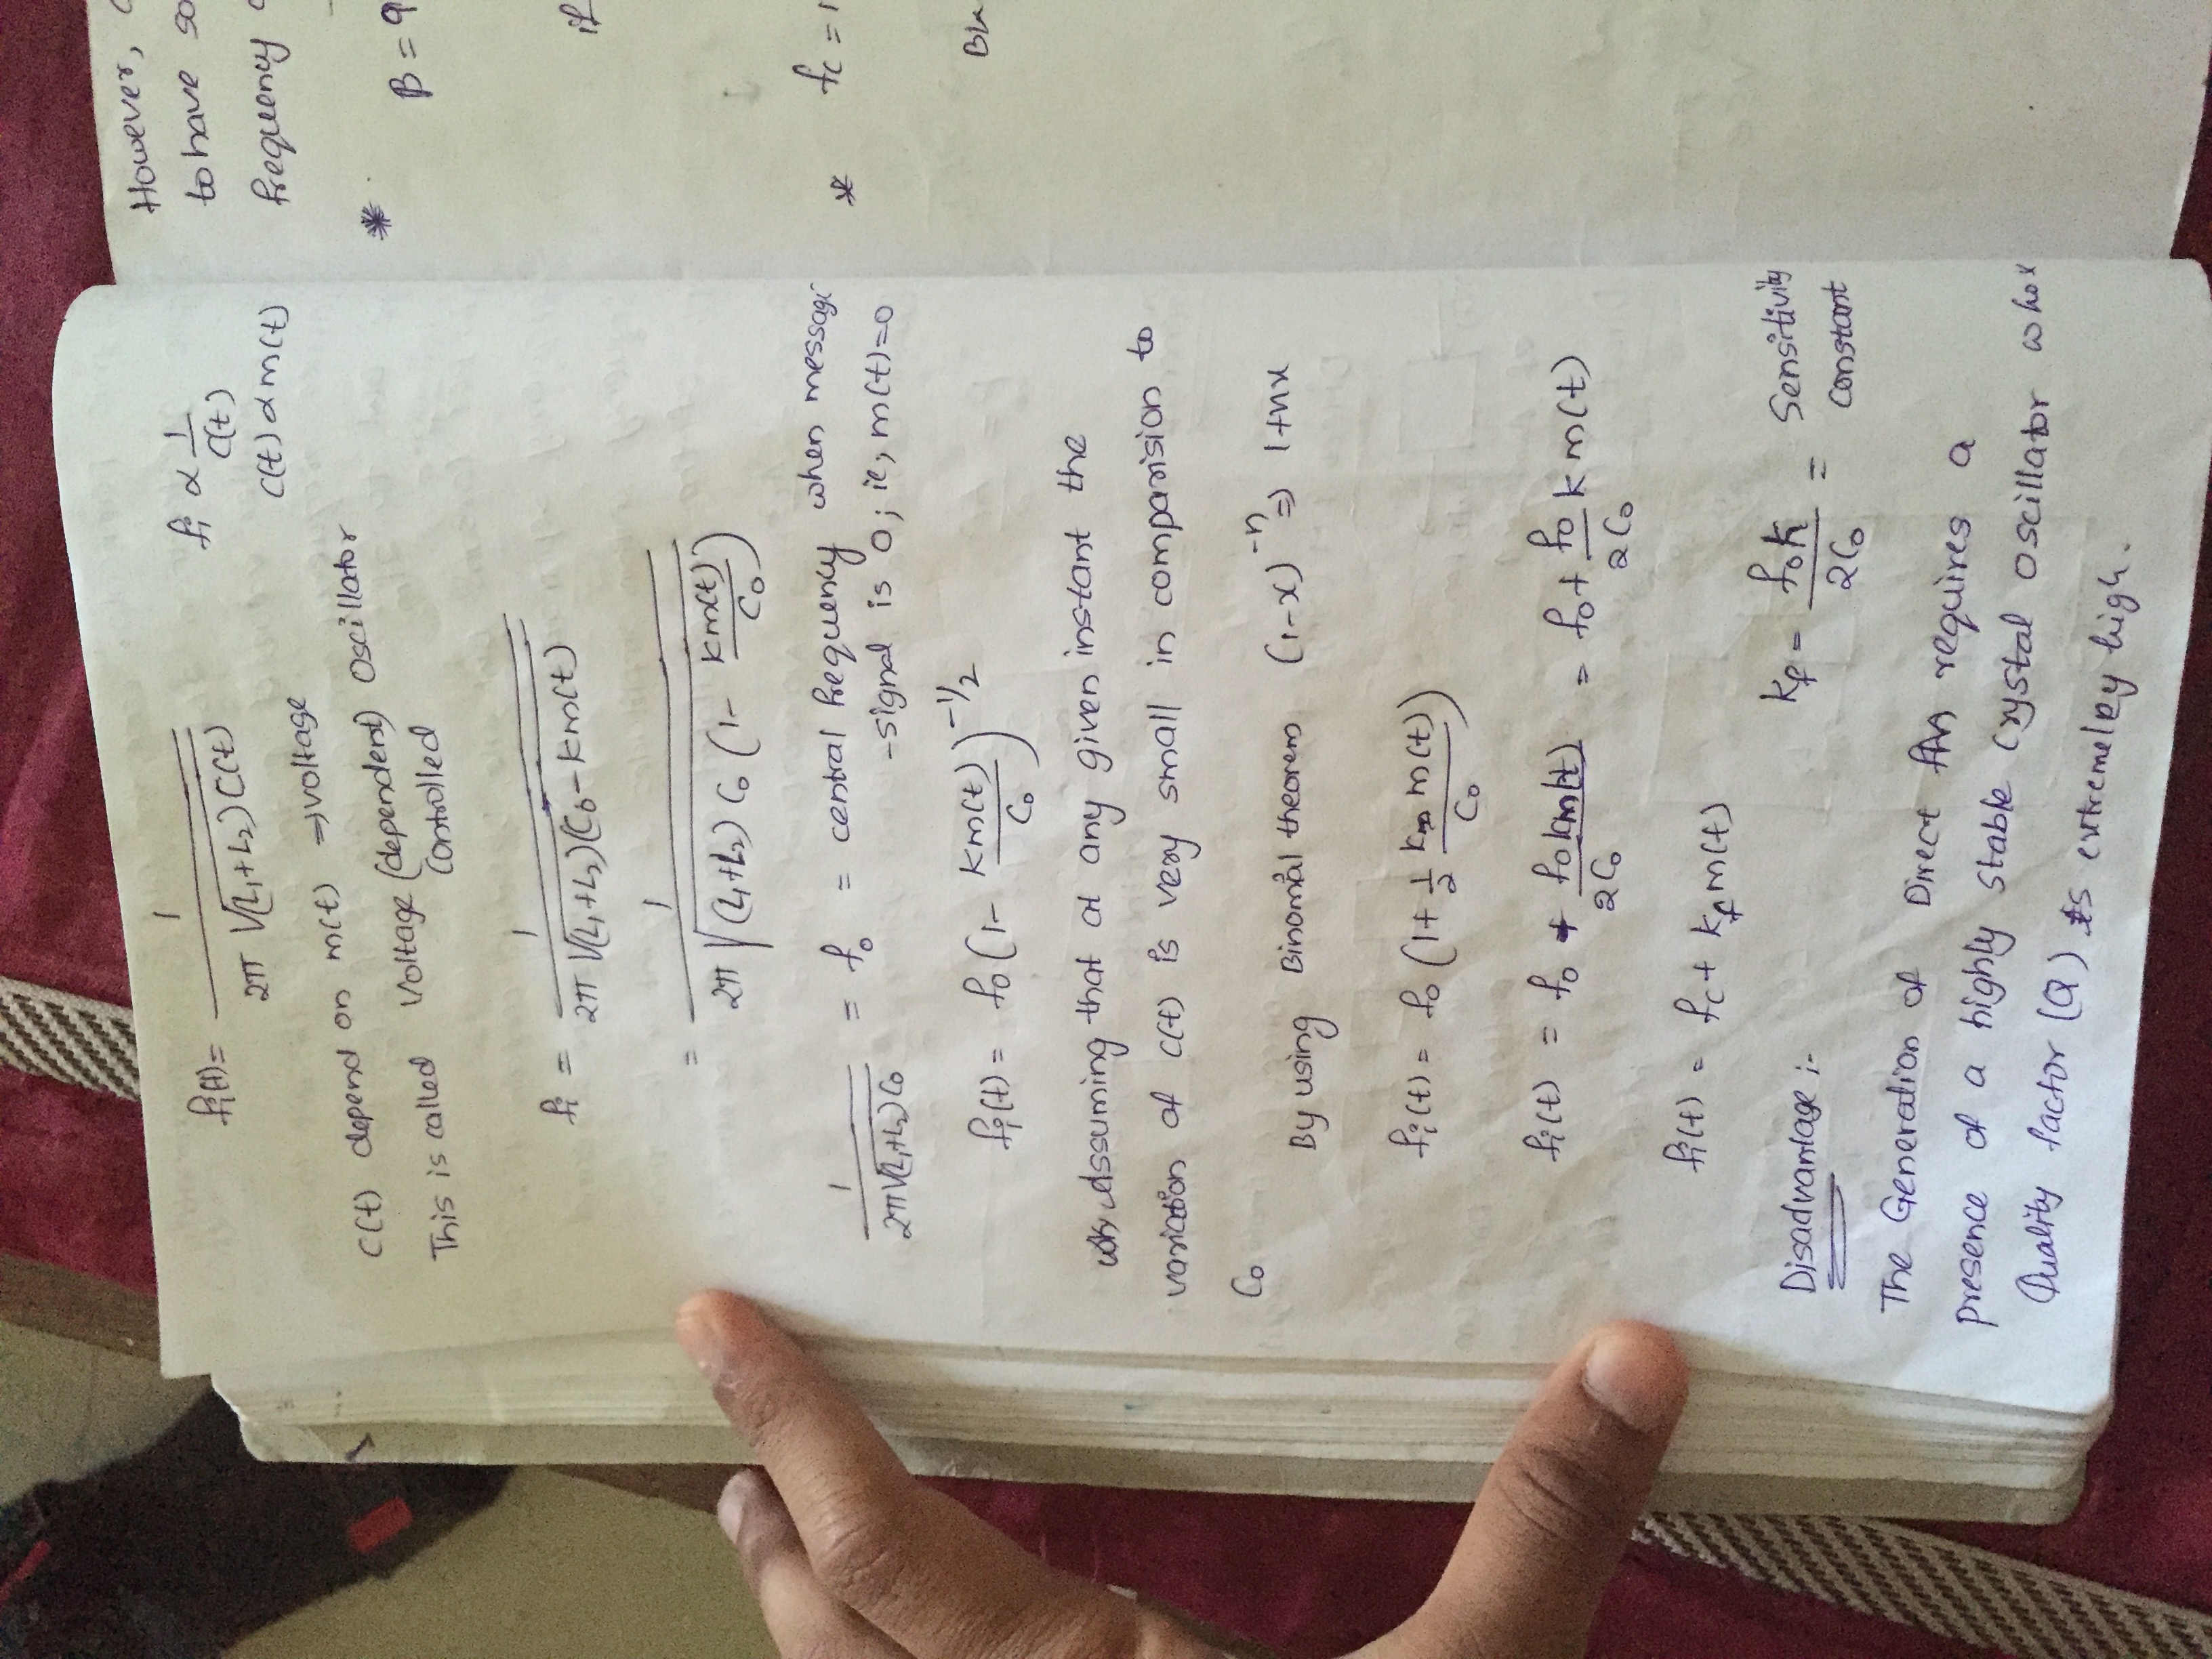 fi(t) = 1 / 2π √(L₁+L₂) C(t)
fi ∝ 1 / C(t)
C(t) ∝ m(t)
C(t) depend on m(t) ⇒ voltage
This is called Voltage (dependent) Oscillator
Controlled
fi = 1 / 2π √(L₁+L₂)(C₀ - km(t)
= 1 / 2π √(L₁+L₂) C₀ (1 - km(t)/C₀)
1 / 2π√(L₁+L₂)C₀ = f₀ = central frequency when messag
-signal is 0; ie, m(t)=0
fi(t) = f₀ (1 - km(t)/C₀)^-1/2
Assuming that at any given instant the
variation of C(t) is very small in comparision to
C₀
By using Binomial theorem (1-x)^-n ⇒ 1+nx
fi(t) = f₀ (1 + 1/2 k m(t)/C₀)
fi(t) = f₀ + f₀km(t)/2C₀ = f₀ + f₀/2C₀ k m(t)
fi(t) = fc + kf m(t)
kf = f₀k/2C₀ = Sensitivity
constant
Disadvantage :-
The Generation of Direct FM requires a
presence of a highly stable Crystal oscillator whos
Quality factor (Q) is extremeley high.
However,
to have so
frequency
*
β = 9
if
* fc = 1